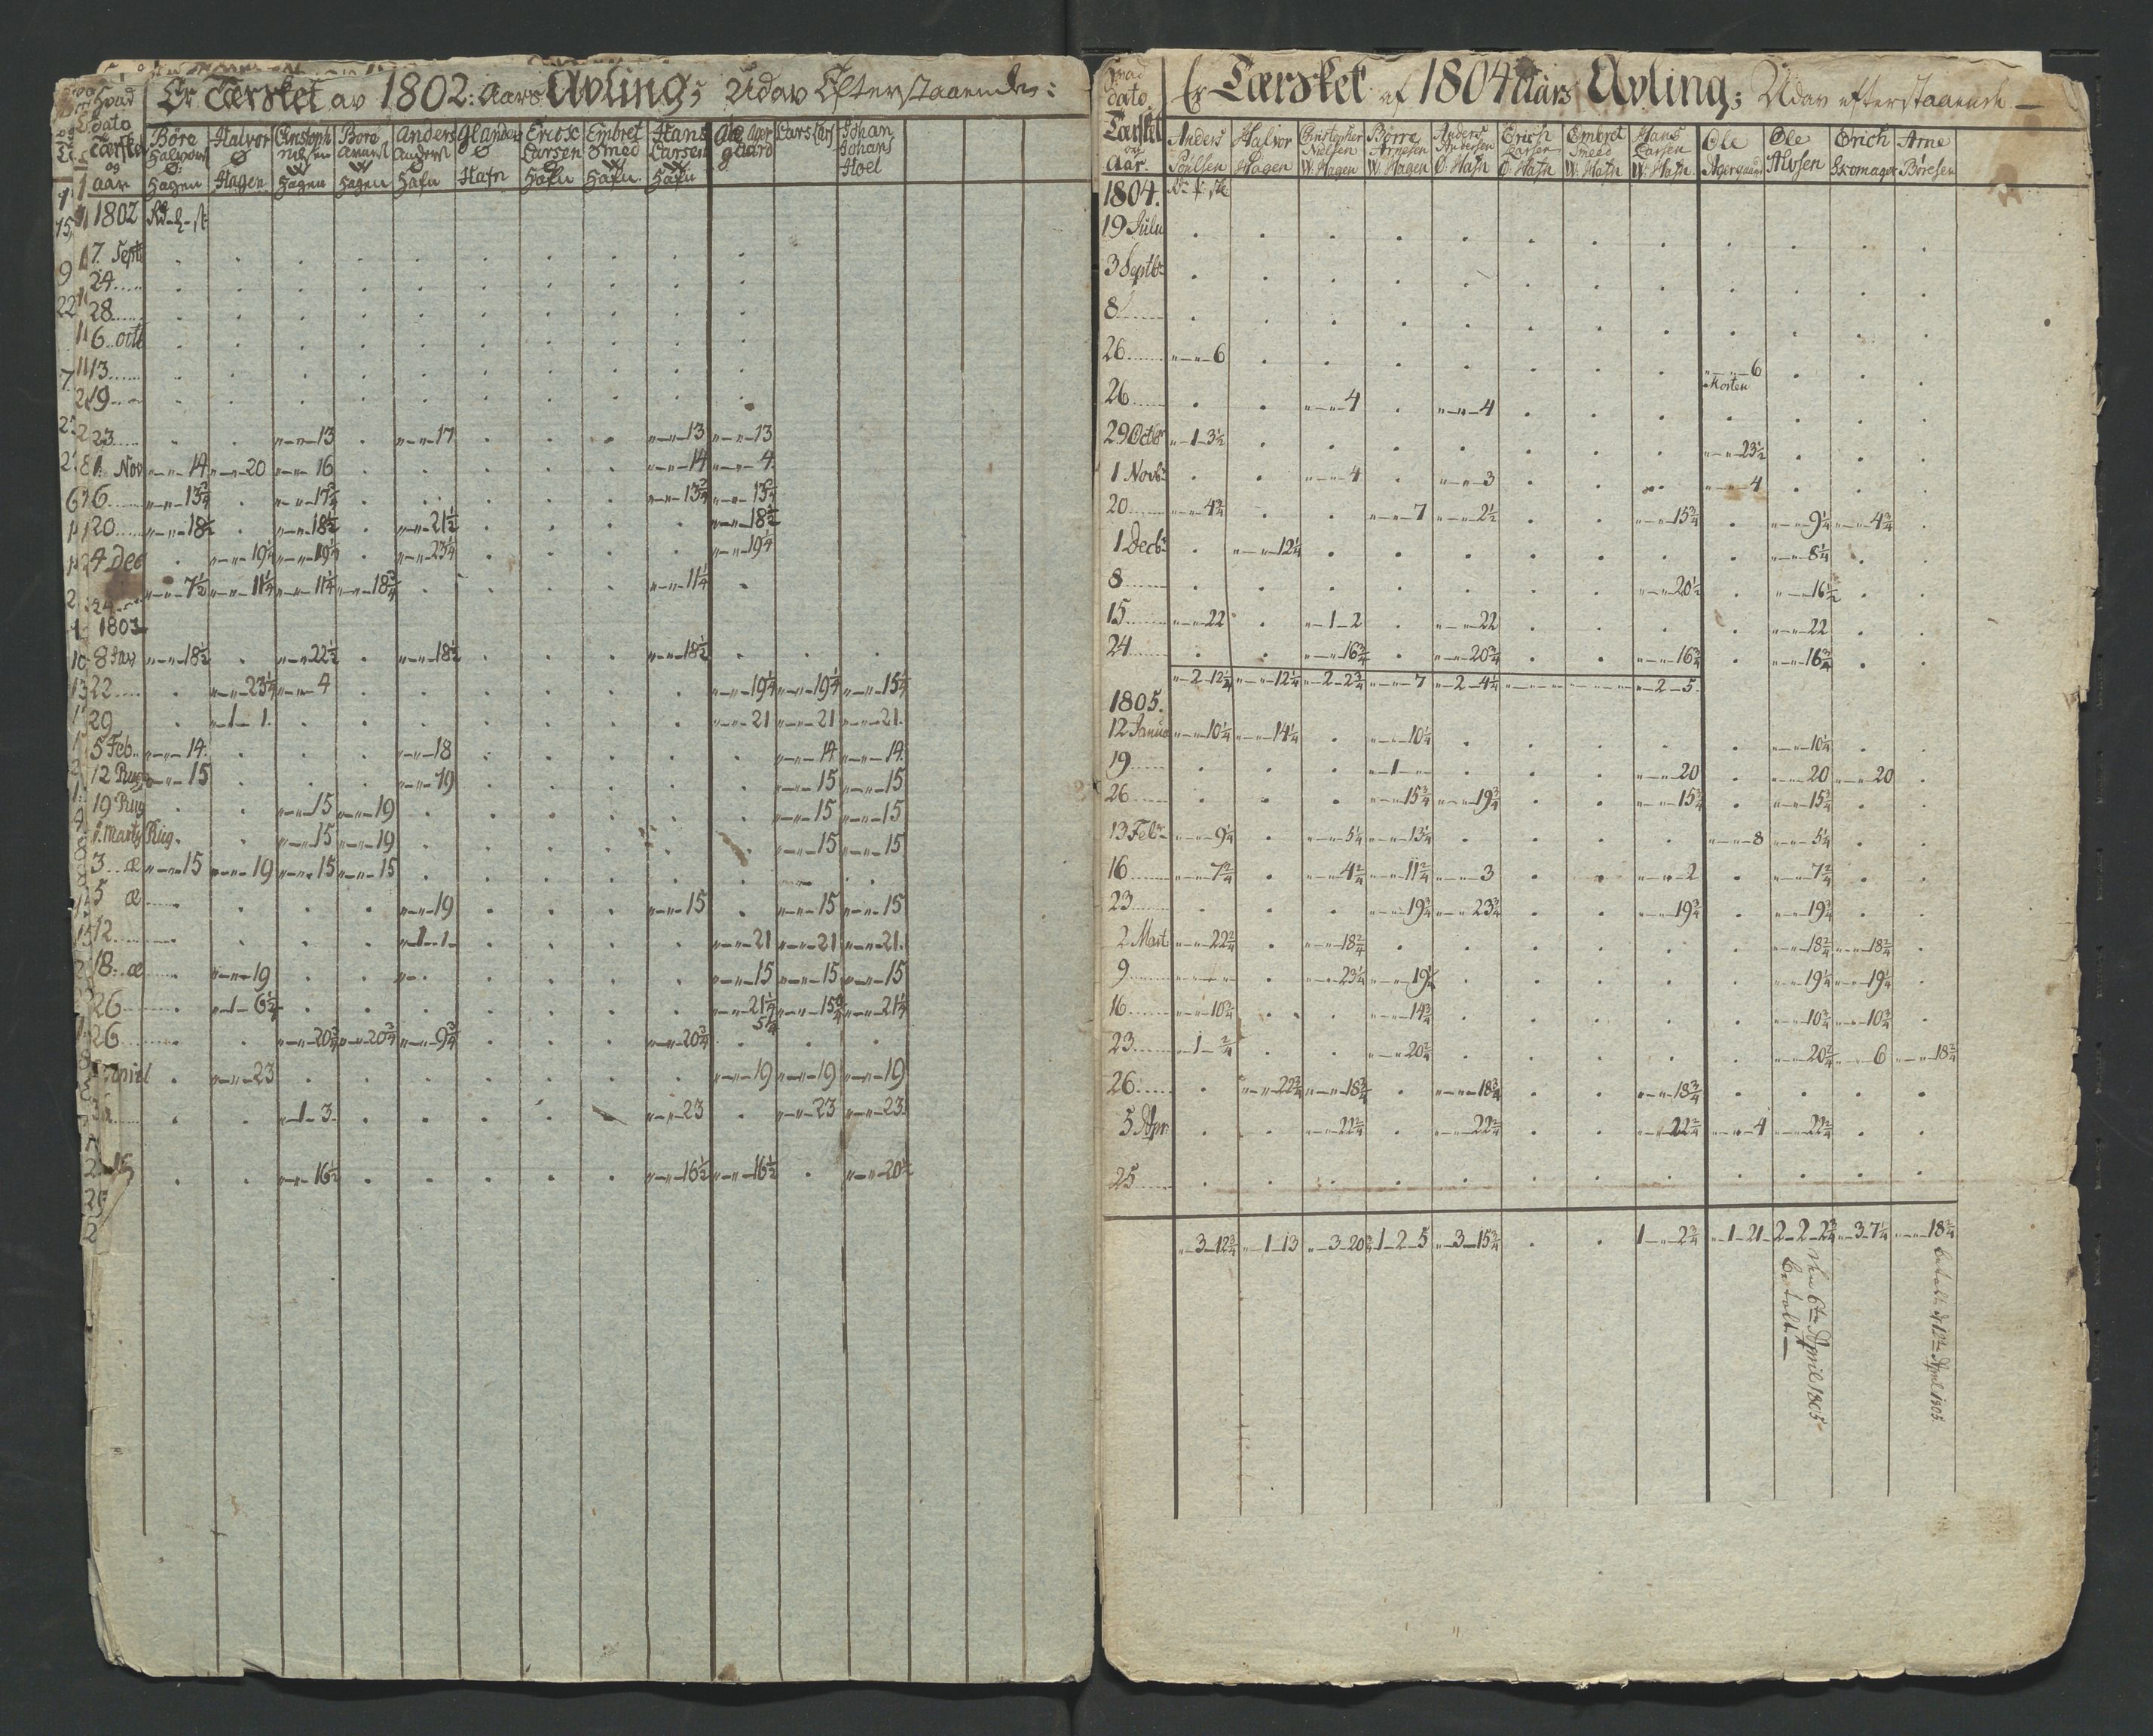 Er Tærsket av 1802: Aars Avling; Udav Efterstaaende:
Hvad dato Tærsket og aar | Børe Halvors Ø: Hagen | Halvor Ø Hagen | Christoph Nilsen W Hagen | Børe W Hagen | Anders Anders Ø Hafn | Gl Anders Ø Hafn | Erick Larsen Ø Hafn | Embret Smed W Hafn | Hans Larsen W Hafn | Ole Ager gaard | Lars Lars | Johan Johans Hoel
1802
17. Sept . . . . . . . . . .
24 . . . . . . . . . .
28 . . . . . . . . . .
6 octb . . . . . . . . . .
13 . . . . . . . . . .
19 . . . . . . . . . .
23 . . „-„-13 . „-„-17 . . . „-„-13 „-„-13
1. Nov „-„-14 „-„-20 „-„-16 . . . . . „-„-14 „-„-4
6 „-„-13 3/4 . „-„-17 3/4 . . . . . „-„-13 3/4 „-„-13 3/4
20 „-„-18 1/2 . „-„-18 1/2 . „-„-21 1/2 . . . . „-„-18 1/2
4 Dec . „-„-19 1/4 „-„-19 1/4 . „-„-23 1/4 . . . . „-„-19 1/4
24 „-„-7 1/2 „-„-11 1/4 „-„-11 1/4 „-„-18 3/4 . . . . „-„-11 1/4 .
1803
8 Jan „-„-18 1/2 . „-„-22 1/2 . „-„-18 1/2 . . . „-„-18 1/2 . . .
22 . „-„-23 1/4 „-„-4 . . . . . . „-„-19 1/4 „-„-19 1/4 „-„-15 1/4
29 . „-1-1. . . . . . . . „-„-21 „-„-21 „-„-21.
5 Feb. „-„-14. . . . „-„-18 . . . . . „-„-14 „-„-14.
12 Rug „-„-15 . . . „-„-19 . . . . . „-„-15 „-„-15
19 Rug . . „-„-15 „-„-19 . . . . . . „-„-15 „-„-15
1. Marty Rug. . „-„-15 „-„-19 . . . . . . „-„-15 „-„-15
3 æ „-„-15 „-„-19 „-„-15 „-„-15 . . . . . . . .
5 æ . . . . „-„-19 . . . „-„-15 . „-„-15 „-„-15
12 . . . . „-1-1- . . . . „-„-21 „-„-21 „-„-21.
18. æ . „-„-19 . . „-„. . . . . „-„-15 „-„-15 „-„-15
26 . „-1-6 1/2 . . . . . . . „-„-21 1/4 „-„-15 3/4 „-„-21 1/4
5 1/4
26 . . „-„-20 3/4 „-„-20 3/4 „-„-9 3/4 . . . „-„-20 3/4 . . .
April . „-„-23 . . . . . . . „-„-19 „-„-19 „-„-19
. . „-1-3. . . . . . „-„-23 . „-„-23 „-„-23.
. . „-„-16 1/2 . . . . . „-„-16 1/2 „-„-16 1/2 . „-„-20 1/2
Er Tærsket af 1804 Aars Avling; Udav efterstaaende —
Hvad dato Tærsket og Aar. | Anders Poulsen | Halvor Hagen | Christopher Nielsen W: Hagen | Børre Arnesen W: Hagen | Anders Andersen Ø: Hafn | Erich Larsen Ø: Hafn | Embret Smed W: Hafn | Hans Larsen W: Hafn | Ole Agergaard | Ole Alvsen | Erich Skomager | Arne Børesen
1804.
19 Julii . . . . . . . . . . . .
3 Septbr . . . . . . . . . . . .
8 . . . . . . . . . . . .
26 „-„-6 . . . . . . . „-„-6 . . .
Korten
26 . . „-„-4 . „-„-4 . . . . . . .
29 Octbr „-1-3 1/2 . . . . . . . „-„-23 1/2 . . .
1 Novbr . . „-„-4 . „-„-3 . . . „-„-4 . . .
20 „-„-4 3/4 . . „-„-7 „-„-2 1/2 . . „-„-15 3/4 . „-„-9 1/4 „-„-4 3/4 .
1 Decbr . „-„-12 1/4 . . . . . . . „-„-8 1/4 . .
8 . . . . . . . „-„-20 1/2 . „-„-16 1/2 . .
15 „-„-22 . „-1-2 . „-„-22 . . . . „-„-22 . .
24 . . „-„-16 3/4 . „-„-20 3/4 . . „-„-16 3/4 . „-„-16 3/4 . .
„-2-12 1/4 „-„-12 1/4 „-2-2 3/4 „-„-7 „-2-4 1/4 „-„-„ „-„-„ „-2-5.
1805.
12 Janua „-„-10 1/4 „-„-14 1/4 . „-„-10 1/4 . . . . . „-„-10 1/4 . .
19 . . . „-1-„ . . . „-„-20 . „-„-20 „-„-20 .
26 . . . „-„-15 3/4 „-„-19 3/4 . . „-„-15 3/4 . „-„-15 3/4 . .
13 Febr „-„-9 1/4 . „-„-5 1/4 „-„-13 1/4 . . . . „-„-8 „-„-5 1/4 . .
16 „-„-7 2/4 . „-„-4 2/4 „-„-11 2/4 „-„-3 . . „-„-2 . „-„-7 2/4 . .
23 . . . „-„-19 3/4 „-„-23 3/4 . . „-„-19 3/4 . „-„-19 3/4 . .
2 Mart „-„-22 2/4 . „-„-18 2/4 . . . . . . „-„-18 2/4 „-„-18 2/4 .
9 „-„-„ . „-„-23 1/4 „-„-19 1/4 . . . . . „-„-19 1/4 „-„-19 1/4 .
16 „-„-10 3/4 . . „-„-14 3/4 . . . . . „-„-10 3/4 „-„-10 3/4 .
23 „-1-2/4 . . „-„-20 2/4 . . . . . „-„-20 2/4 „-„-6 „-„-18 3/4
26 . „-„-22 3/4 „-„-18 3/4 . „-„-18 3/4 . . „-„-18 3/4 . . . .
5 Apr . . „-„-22 2/4 . „-„-22 2/4 . . „-„-22 2/4 „-„-4 „-„-22 2/4 . .
25 . . . . . . . . . . . .
„-3-12 3/4 „-1-13 „-3-20 3/4 1-2-5 „-3-15 3/4 . . 1-„-2 3/4 „-1-21 2-2-2 3/4 „-3-7 1/4 „-„-18 3/4
6te April 1805
betalt —
betalt d 12te April 1805